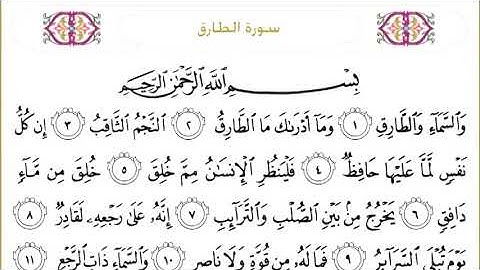 سورة الطارق
بِسْمِ اللَّهِ الرَّحْمَٰنِ الرَّحِيمِ
وَالسَّمَاءِ وَالطَّارِقِ ١ وَمَا أَدْرَىٰكَ مَا الطَّارِقُ ٢ النَّجْمُ الثَّاقِبُ ٣ إِن كُلُّ
نَفْسٍ لَّمَّا عَلَيْهَا حَافِظٌ ٤ فَلْيَنظُرِ الْإِنسَٰنُ مِمَّ خُلِقَ ٥ خُلِقَ مِن مَّاءٍ
دَافِقٍ ٦ يَخْرُجُ مِنۢ بَيْنِ الصُّلْبِ وَالتَّرَائِبِ ٧ إِنَّهُۥ عَلَىٰ رَجْعِهِۦ لَقَادِرٌ ٨
يَوْمَ تُبْلَى السَّرَائِرُ ٩ فَمَا لَهُۥ مِن قُوَّةٍ وَلَا نَاصِرٍ ١٠ وَالسَّمَاءِ ذَاتِ الرَّجْعِ ١١